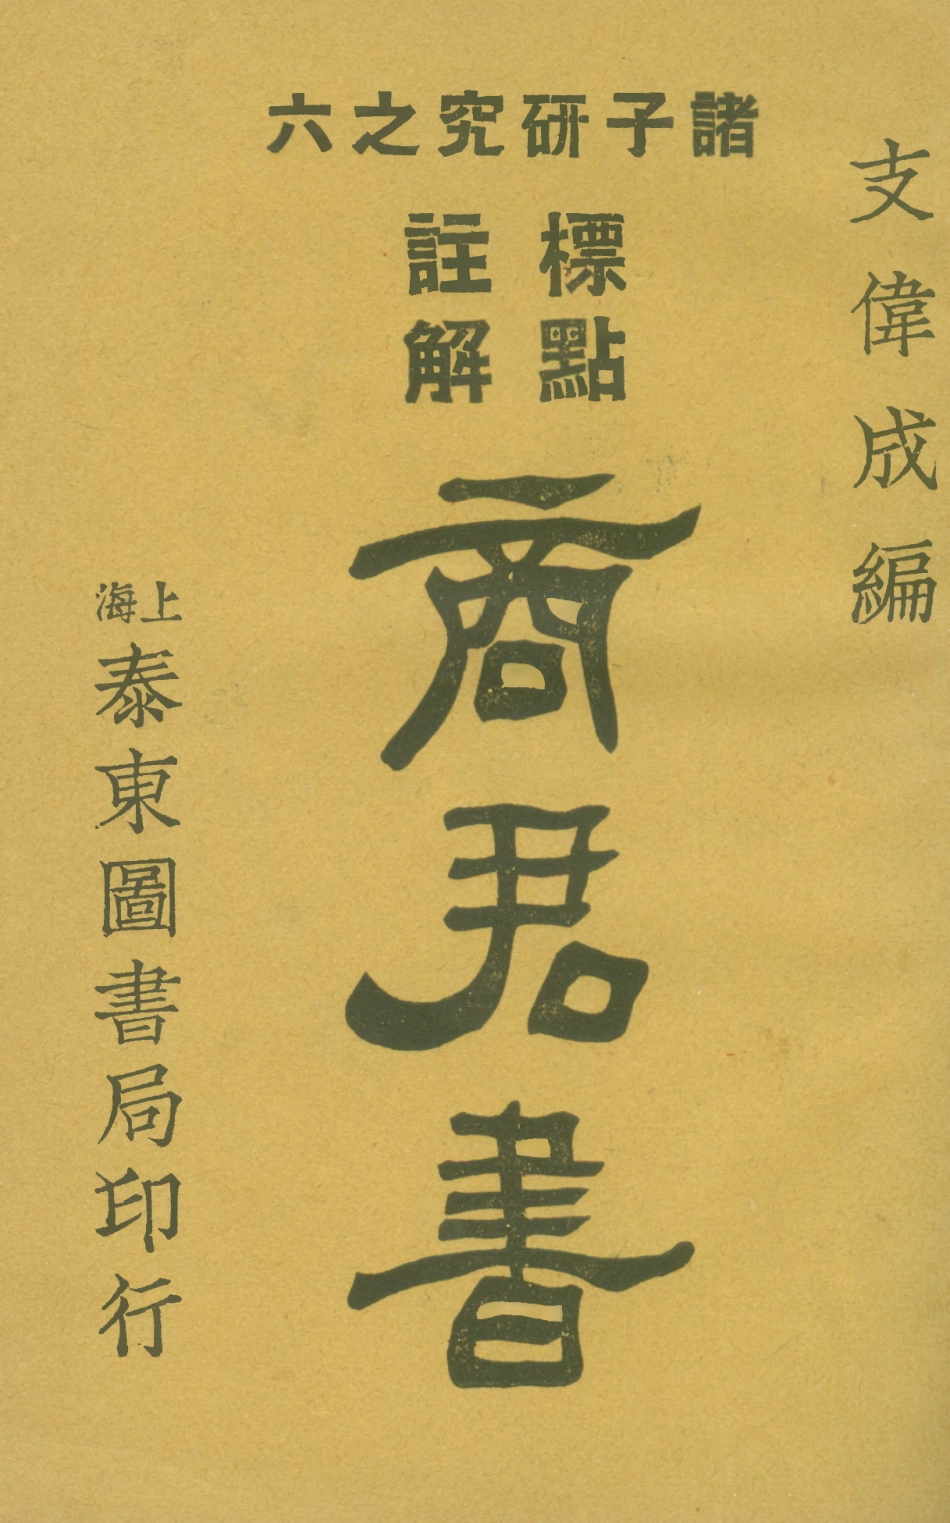 諸子研究之六
支偉成編
標點
註解
商君書
上海
泰東圖書局印行